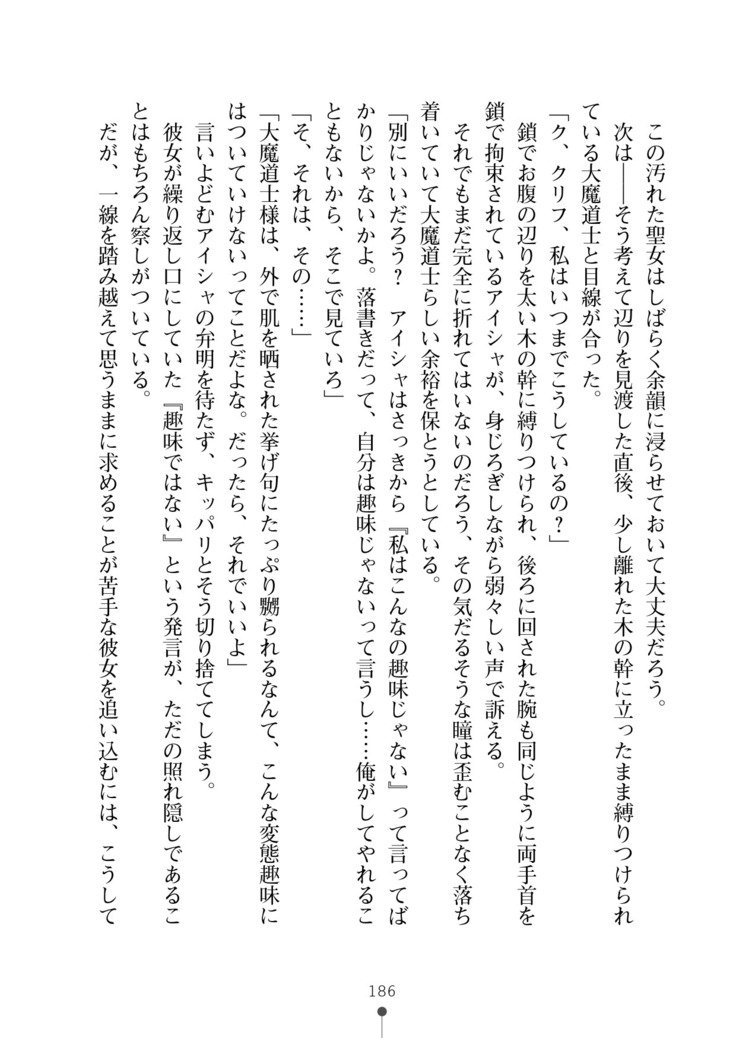 この汚れた聖女はしばらく余韻に浸らせておいて大丈夫だろう。
次は――そう考えて辺りを見渡した直後、少し離れた木の幹に立ったまま縛りつけられ
ている大魔道士と目線が合った。
「ク、クリフ、私はいつまでこうしているの？」
鎖でお腹の辺りを太い木の幹に縛りつけられ、後ろに回された腕も同じように両手首を
鎖で拘束されているアイシャが、身じろぎしながら弱々しい声で訴える。
それでもまだ完全に折れてはいないのだろう、その気だるそうな瞳は歪むことなく落ち
着いていて大魔道士らしい余裕を保とうとしている。
「別にいいだろう？　アイシャはさっきから『私はこんなの趣味じゃない』って言ってば
かりじゃないかよ。落書きだって、自分は趣味じゃないって言うし……俺がしてやれるこ
ともないから、そこで見ていろ」
「そ、それは、その……」
「大魔道士様は、外で肌を晒された挙げ句にたっぷり嬲られるなんて、こんな変態趣味に
はついていけないってことだよな。だったら、それでいいよ」
言いよどむアイシャの弁明を待たず、キッパリとそう切り捨ててしまう。
彼女が繰り返し口にしていた『趣味ではない』という発言が、ただの照れ隠しであるこ
とはもちろん察しがついている。
だが、一線を踏み越えて思うままに求めることが苦手な彼女を追い込むには、こうして
186